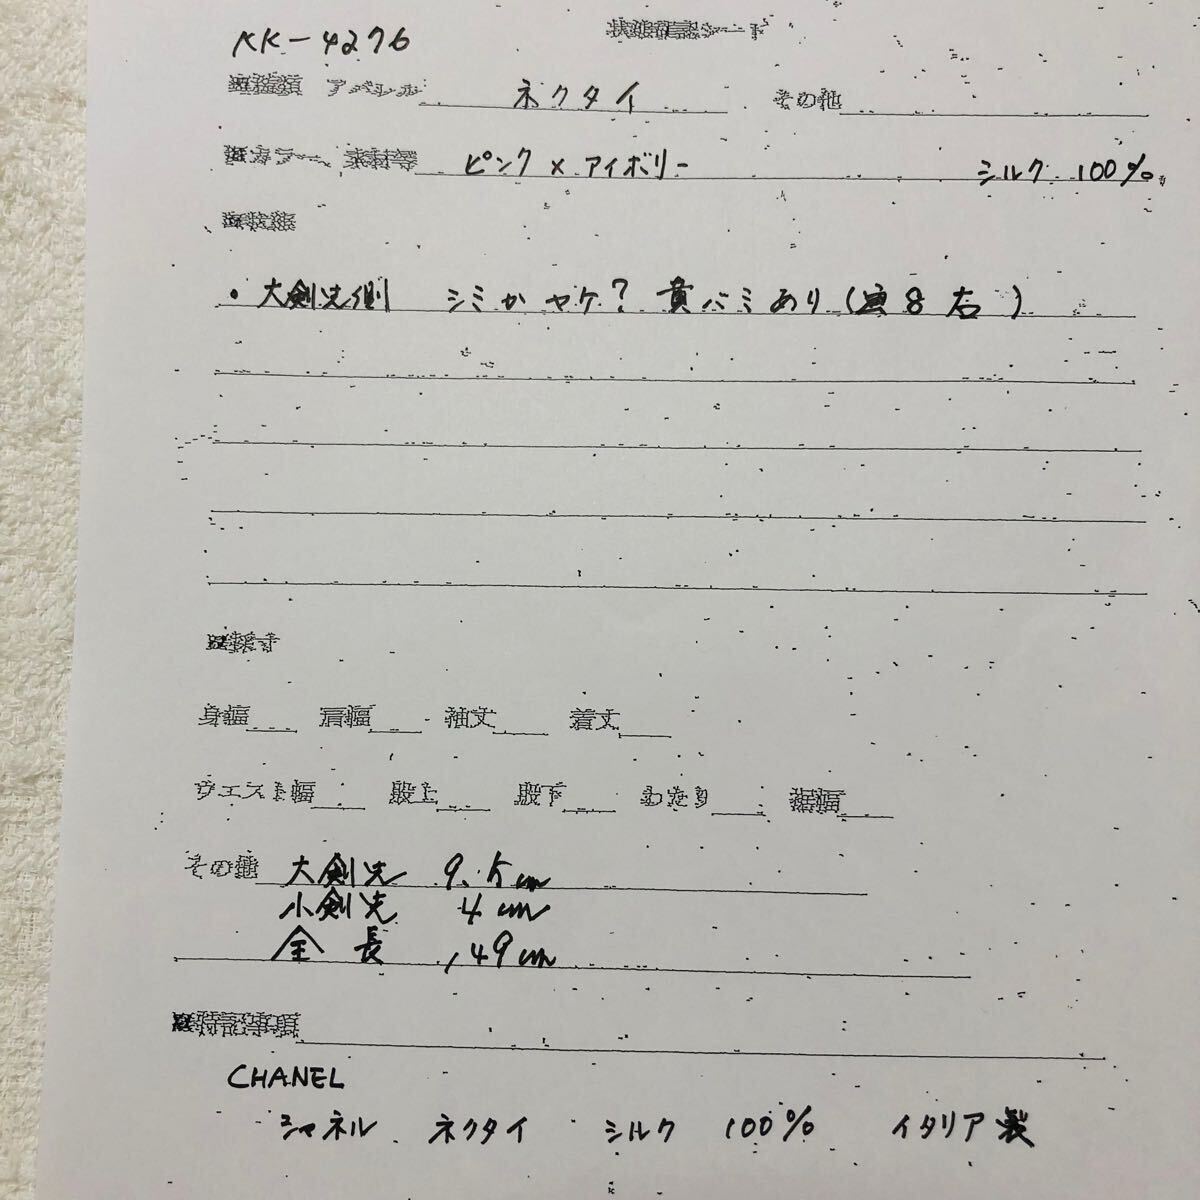 KK-4276
状態確認シート
■種類 アパレル ネクタイ その他
■カラー、素材等 ピンク×アイボリー シルク 100%
■状態
・大剣先側 シミかヤケ?黄バミあり(画8右)
■採寸
身幅 肩幅 袖丈 着丈
ウエスト幅 股上 股下 わたり 裾幅
その他 大剣先 9.5cm
小剣先 4cm
全長 149cm
■特記事項
CHANEL
シャネル ネクタイ シルク 100% イタリア製